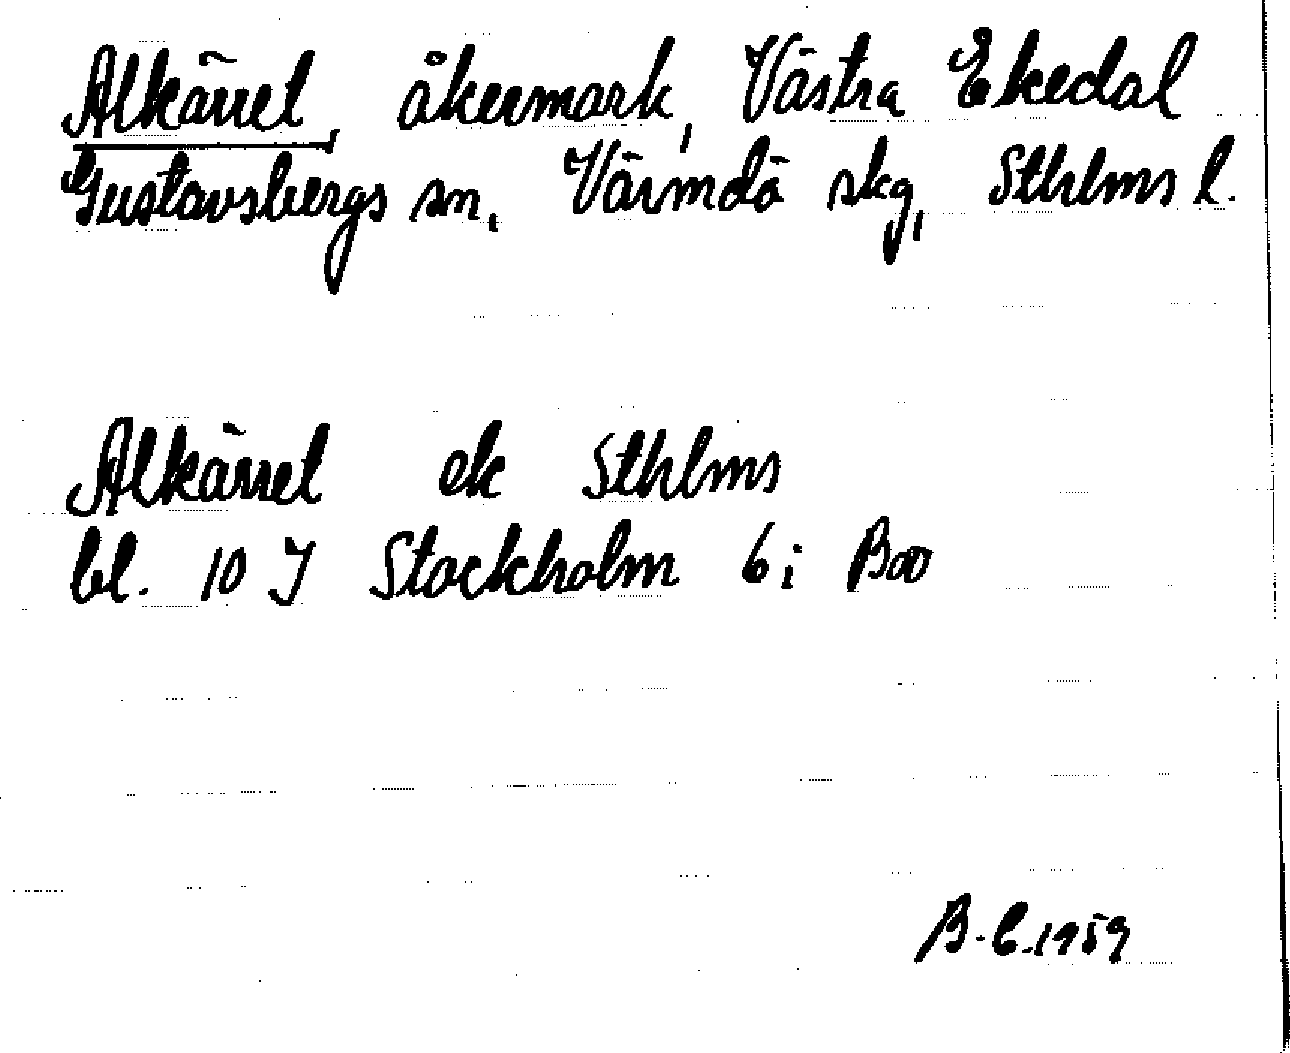 Alkärret, åkermark, Västra Ekedal
Gustavsbergs sn, Värmdö skg, Sthlms l.
Alkärret ek Sthlms
bl. 10 J Stockholm 6 i Boo
B.C. 1959